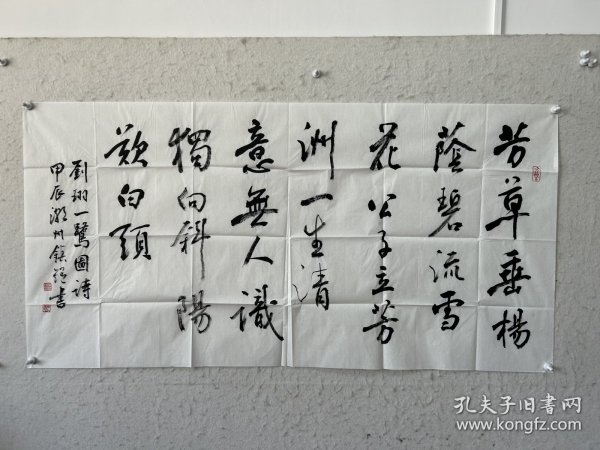 芳草垂楊
蔭碧流雪
花公子立芳
洲一生清
意無人識
獨向斜陽
歎白頭
劉翊一鷺圖詩
甲辰潮州鎮鎧書
孔夫子旧书网
www.kongfz.com